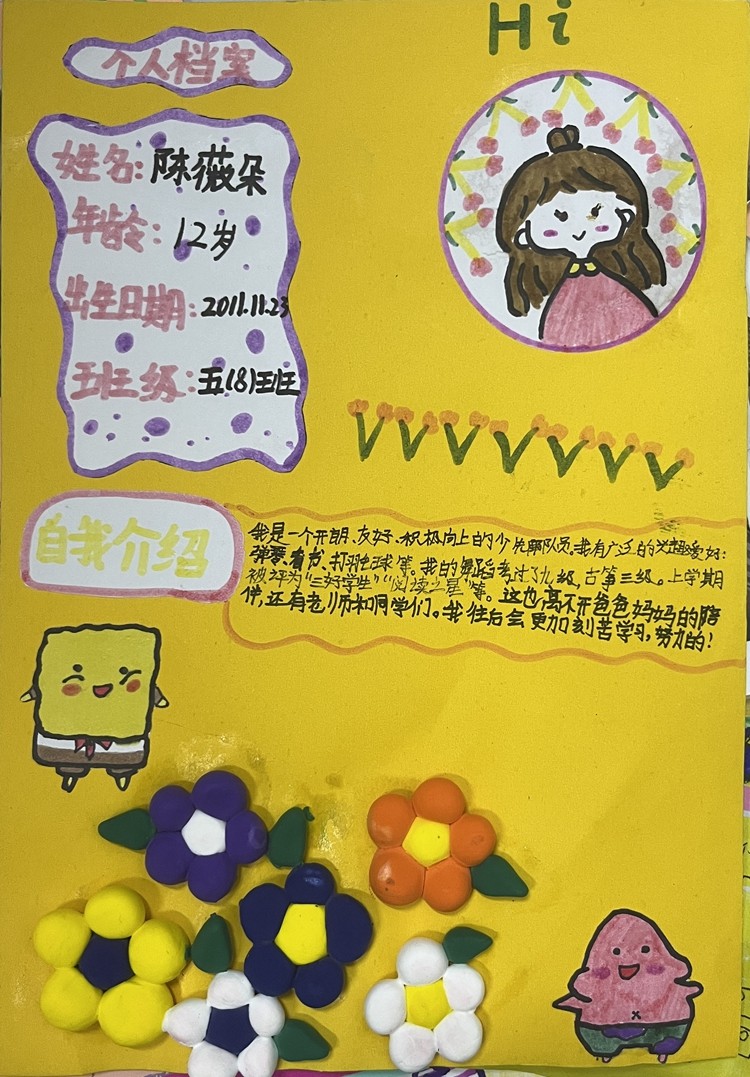 Hi
个人档案
姓名:陈薇朵
年龄:12岁
出生日期:2011.11.23
班级:五(8)班
自我介绍
我是一个开朗、友好、积极向上的少先队员。我有广泛的兴趣爱好:
弹琴、看书、打羽毛球等。我的舞蹈考过了九级,古筝三级。上学期
被评为“三好学生”“阅读之星”等。这也离不开爸爸妈妈的陪
伴,还有老师和同学们。我往后会更加刻苦学习,努力的!